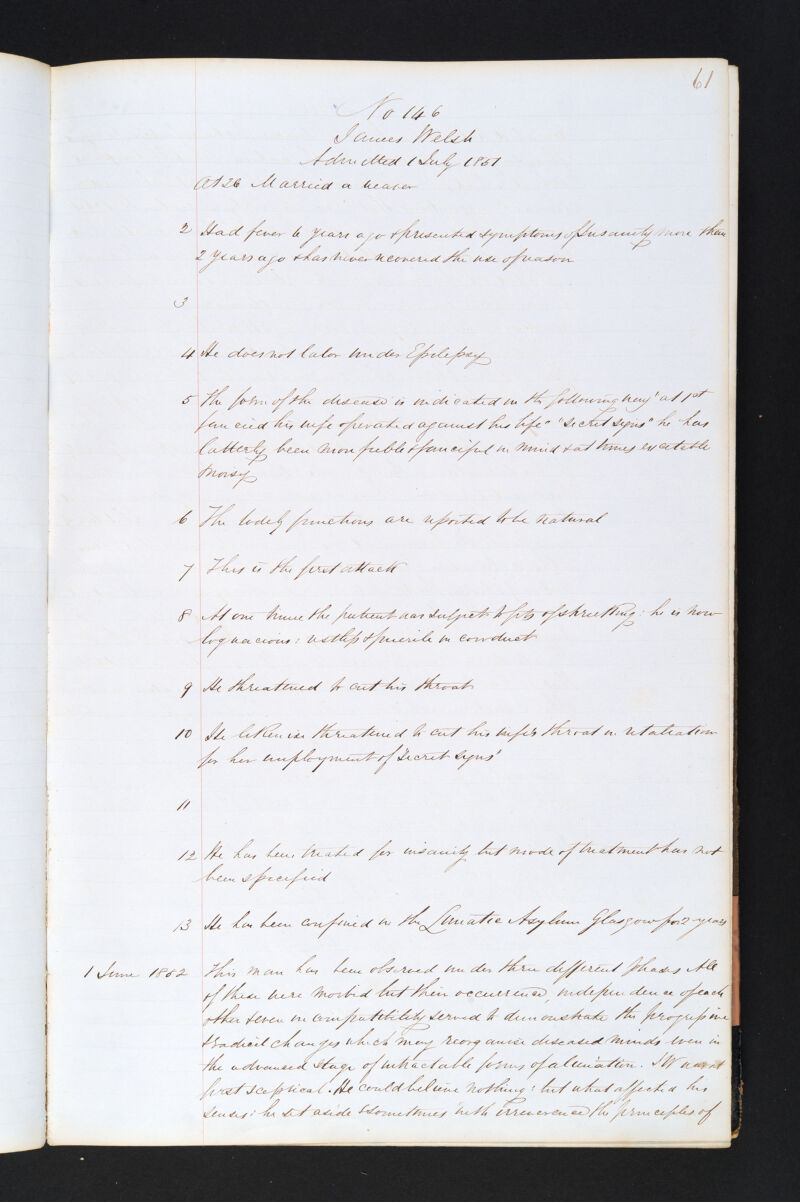 61
No 146
James Welsh
Admitted 1 July 1851
At 26 Married a weaver
2 Had fever 6 years ago & presented symptoms of Insanity more than
2 years ago & has never recovered the use of reason
3
4 He does not labor under Epilepsy
5 The form of the disease is indicated in the following way "at 1st
fancied his wife operated against his life" "secret signs" he has
latterly been more feeble & fanciful in mind & at times excitable
noisy
6 The bodily functions are reported to be natural
7 This is the first attack
8 At one time the patient was subject to fits of shrieking: he is now
loquacious: restless & puerile in conduct
9 He threatened to cut his throat
10 He likewise threatened to cut his wife's throat in retaliation
for her employment of 'secret signs'
11
12 He has been treated for insanity but mode of treatment has not
been specified
13 He has been confined in the Lunatic Asylum Glasgow for 2 years
1 June 1852 This man has been observed under three different phases All
of these were morbid but their occurrence, independence of each
other & even incompatibility served to demonstrate the progressive
& radical changes which may reorganise diseased minds even in
the advanced stage of intractable forms of alienation. J W was at
first sceptical. He could believe nothing: but what affected his
senses: he set aside & sometimes with irreverence the principles of